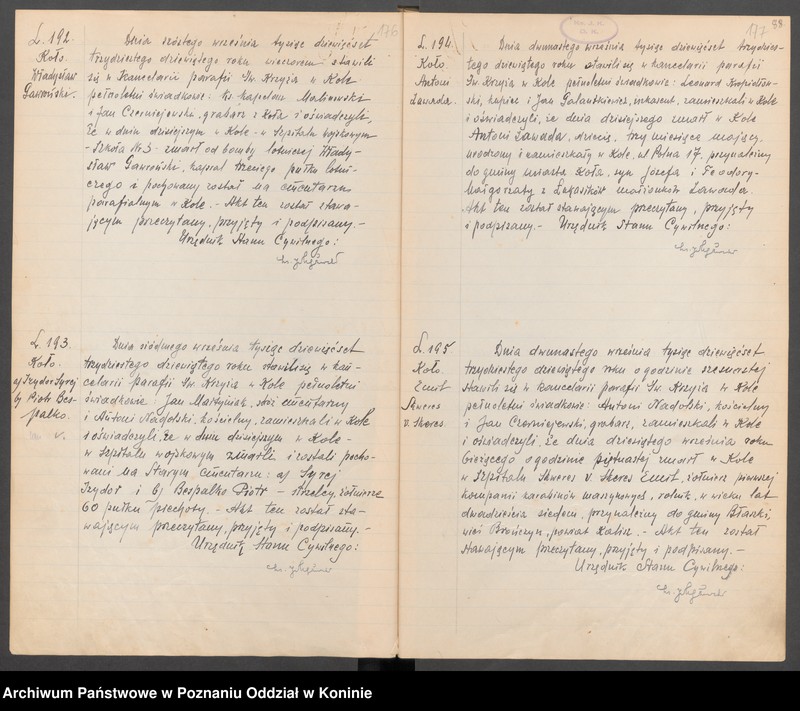 176
L. 192.
Koło.
Władysław
Gawroński.
Dnia szóstego września tysiąc dziewięćset
trzydziestego dziewiątego roku wieczorem stawili
się w Kancelarii parafii Św. Krzyża w Kole
pełnoletni świadkowie: ks. kapelan Malinowski
i Jan Czerniejewski, grabarz z Koła i oświadczyli,
że w dniu dzisiejszym w Kole - w Szpitalu wojskowym
- Szkoła № 3 - zmarł od bomby lotniczej Włady-
sław Gawroński, kapral trzeciego pułku lotni-
czego i pochowany został na cmentarzu
parafialnym w Kole. - Akt ten został stawa-
jącym przeczytany, przyjęty i podpisany. -
Urzędnik Stanu Cywilnego:
L. 193.
Koło.
a/ Izydor Syrej
b/ Piotr Bes-
palko.
Dnia siódmego września tysiąc dziewięćset
trzydziestego dziewiątego roku stawili się w kan-
celarii parafii Św. Krzyża w Kole pełnoletni
świadkowie: Jan Martyniak, stróż cmentarny
i Antoni Nadolski, kościelny, zamieszkali w Kole
i oświadczyli, że w dniu dzisiejszym w Kole -
w Szpitalu wojskowym zmarli i zostali pocho-
wani na Starym cmentarzu: a/ Syrej
Izydor i b/ Bespalko Piotr - strzelcy, żołnierze
60 pułku piechoty. - Akt ten został sta-
wającym przeczytany, przyjęty i podpisany. -
Urzędnik Stanu Cywilnego:
177
88
L. 194.
Koło.
Antoni
Zawada.
Dnia dwunastego września tysiąc dziewięćset trzydzies-
tego dziewiątego roku stawili się w kancelarii parafii
Św. Krzyża w Kole pełnoletni świadkowie: Leonard
ski, kupiec i Jan inkasent, zamieszkali w Kole
i oświadczyli, że dnia dzisiejszego zmarł w Kole
Antoni Zawada, dziecię, trzy miesiące mający,
urodzony i zamieszkały w Kole, ul. Polna 17, przynależny
do gminy miasta Koła, syn Józefa i Teodory-
Małgorzaty z małżonków Zawada.
Akt ten został stawającym przeczytany, przyjęty
i podpisany. - Urzędnik Stanu Cywilnego:
L. 195
Koło
Emil
Skweres
v. Skeres.
Dnia dwunastego września tysiąc dziewięćset
trzydziestego dziewiątego roku o godzinie szesnastej
stawili się w kancelarii parafii Św. Krzyża w Kole
pełnoletni świadkowie: Antoni Nadolski, kościelny
i Jan Czerniejewski, grabarz, zamieszkali w Kole
i oświadczyli, że dnia dziesiątego września roku
bieżącego o godzinie piętnastej zmarł w Kole
w Szpitalu Skweres v. Skeres Emil, żołnierz pierwszej
kompanii karabinów maszynowych, rolnik, w wieku lat
dwadzieścia siedem, przynależny do gminy Błaszki,
wieś Brończyn, powiat Kalisz. - Akt ten został
stawającym przeczytany, przyjęty i podpisany. -
Urzędnik Stanu Cywilnego:
Archiwum Państwowe w Poznaniu Oddział w Koninie